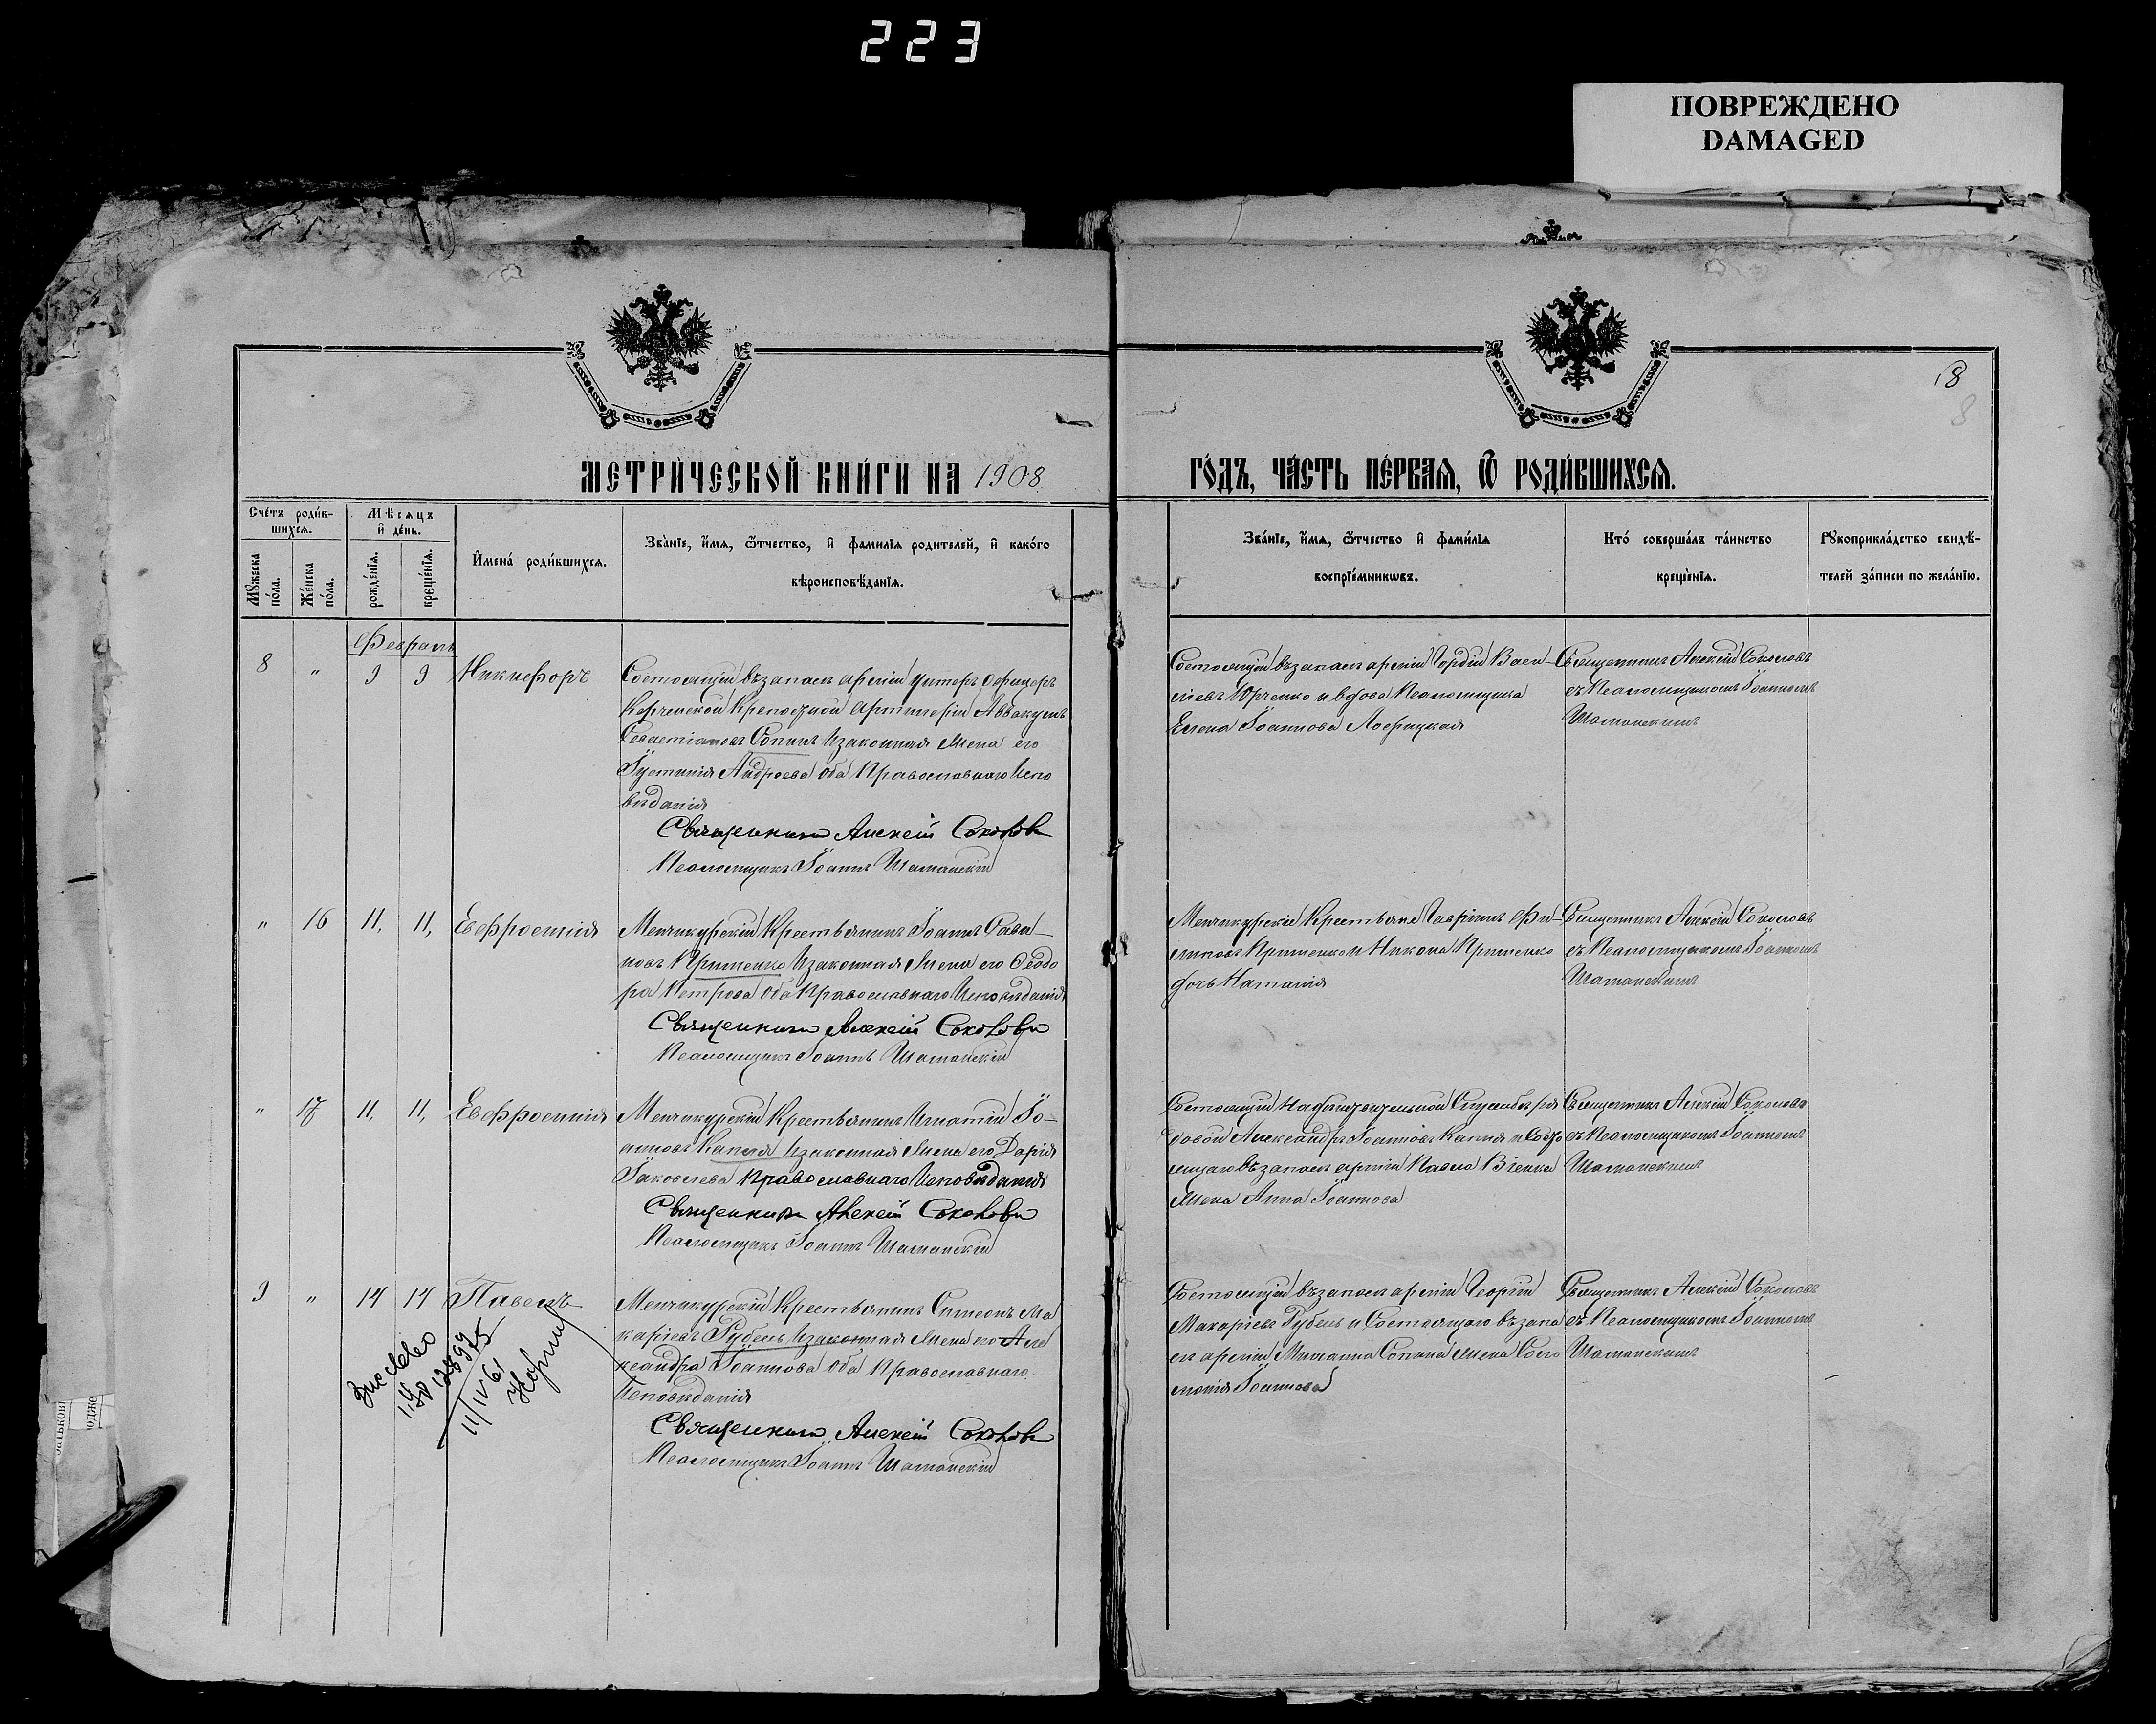 223
ПОВРЕЖДЕНО
DAMAGED
18
8
МЕТРИ́ЧЕСКОЙ КНИ́ГИ НА 1908
ГО́ДЪ, ЧА́СТЬ ПЕ́РВАѦ, Ѿ РОДИ́ВШИХСѦ.
Сче́тъ роди́в-
шихсѧ.
Мꙋжеска по́ла.
Же́нска по́ла.
Мѣсѧцъ
и҆ де́нь.
рожде́нїѧ.
креще́нїѧ.
И҆мена̀ роди́вшихсѧ.
Зва́нїе, и҆́мѧ, ѻ҆́тчество, и҆ фамилїѧ родителей, и҆ како́го
вѣроисповѣ́данїѧ.
Зва́нїе, и҆́мѧ, ѻ҆́тчество и҆ фами́лїѧ
воспрїе́мникѡвъ.
Кто̀ соверша́лъ та́инство
креще́нїѧ.
Рꙋкоприкла́дство свидѣ́-
телей за́писи по жела́нїю.
Февраль
8 " 9 9 Никифоръ
Состоящій въ запасѣ арміи унтеръ офицеръ
Керченской Крепостной Артилеріи Аввакумъ
Севастіановъ Сопинъ и законная жена его
Іустинія Андреева оба Православнаго Испо
вѣданія
Священникъ Алексій Соколовъ
Псаломщикъ Іоаннъ Шаманскій
Состоящій въ запасѣ арміи Гордій Васи-
ліевъ Юрченко и вдова Псаломщика
Елена Іоаннова Лофицкая
Священникъ Алексій Соколовъ
съ Псаломщикомъ Іоанномъ
Шаманскимъ
" 16 11, 11, Евфросинія
Менчикурскій Крестьянинъ Іоаннъ Сави-
новъ Крипенко и законная жена его Феодо
ра Петрова оба Православнаго Исповѣданія
Священникъ Алексій Соколовъ
Псаломщикъ Іоаннъ Шаманскій
Менчикурскіе Крестьяне Гавріилъ Фи-
липовъ Крипенко и Никона Крипенко
дочь Наталія
Священникъ Алексій Соколовъ
съ Псаломщикомъ Іоанномъ
Шаманскимъ
" 17 11, 11, Евфросинія
Менчикурскій Крестьянинъ Игнатій Іо-
анновъ Капля и законная жена его Дарія
Іаковлева Православнаго Исповѣданія
Священникъ Алексій Соколовъ
Псаломщикъ Іоаннъ Шаманскій
Состоящій на дѣйствительной Службѣ ря
довой Александръ Іоанновъ Капля и Состо
ящаго въ запасѣ арміи Павла
жена Анна Іоаннова
Священникъ Алексій Соколовъ
съ Псаломщикомъ Іоанномъ
Шаманскимъ
9 " 14 14 Павелъ
Менчикурскій Крестьянинъ Симеонъ Ма
каріевъ Рубель и законная жена его Але
ксандра Іоаннова оба Православнаго
Исповѣданія
Священникъ Алексій Соколовъ
Псаломщикъ Іоаннъ Шаманскій
Состоящій въ запасѣ арміи Георгій
Макаріевъ Рубель и Состоящаго въ запа
сѣ арміи Михаила Сопина жена Соло
монія Іоаннова
Священникъ Алексій Соколовъ
съ Псаломщикомъ Іоанномъ
Шаманскимъ
11/IV 61